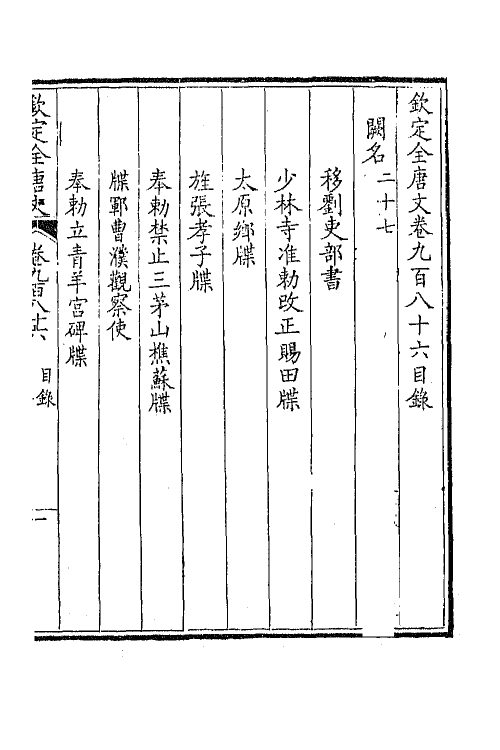 欽定全唐文卷九百八十六目錄
闕名二十七
移劉吏部書
少林寺准勅改正賜田牒
太原鄉牒
旌張孝子牒
奉勅禁止三茅山樵蘇牒
牒鄆曹濮觀察使
奉勅立青羊宫碑牒
欽定全唐文 卷九百八十六 目錄 一